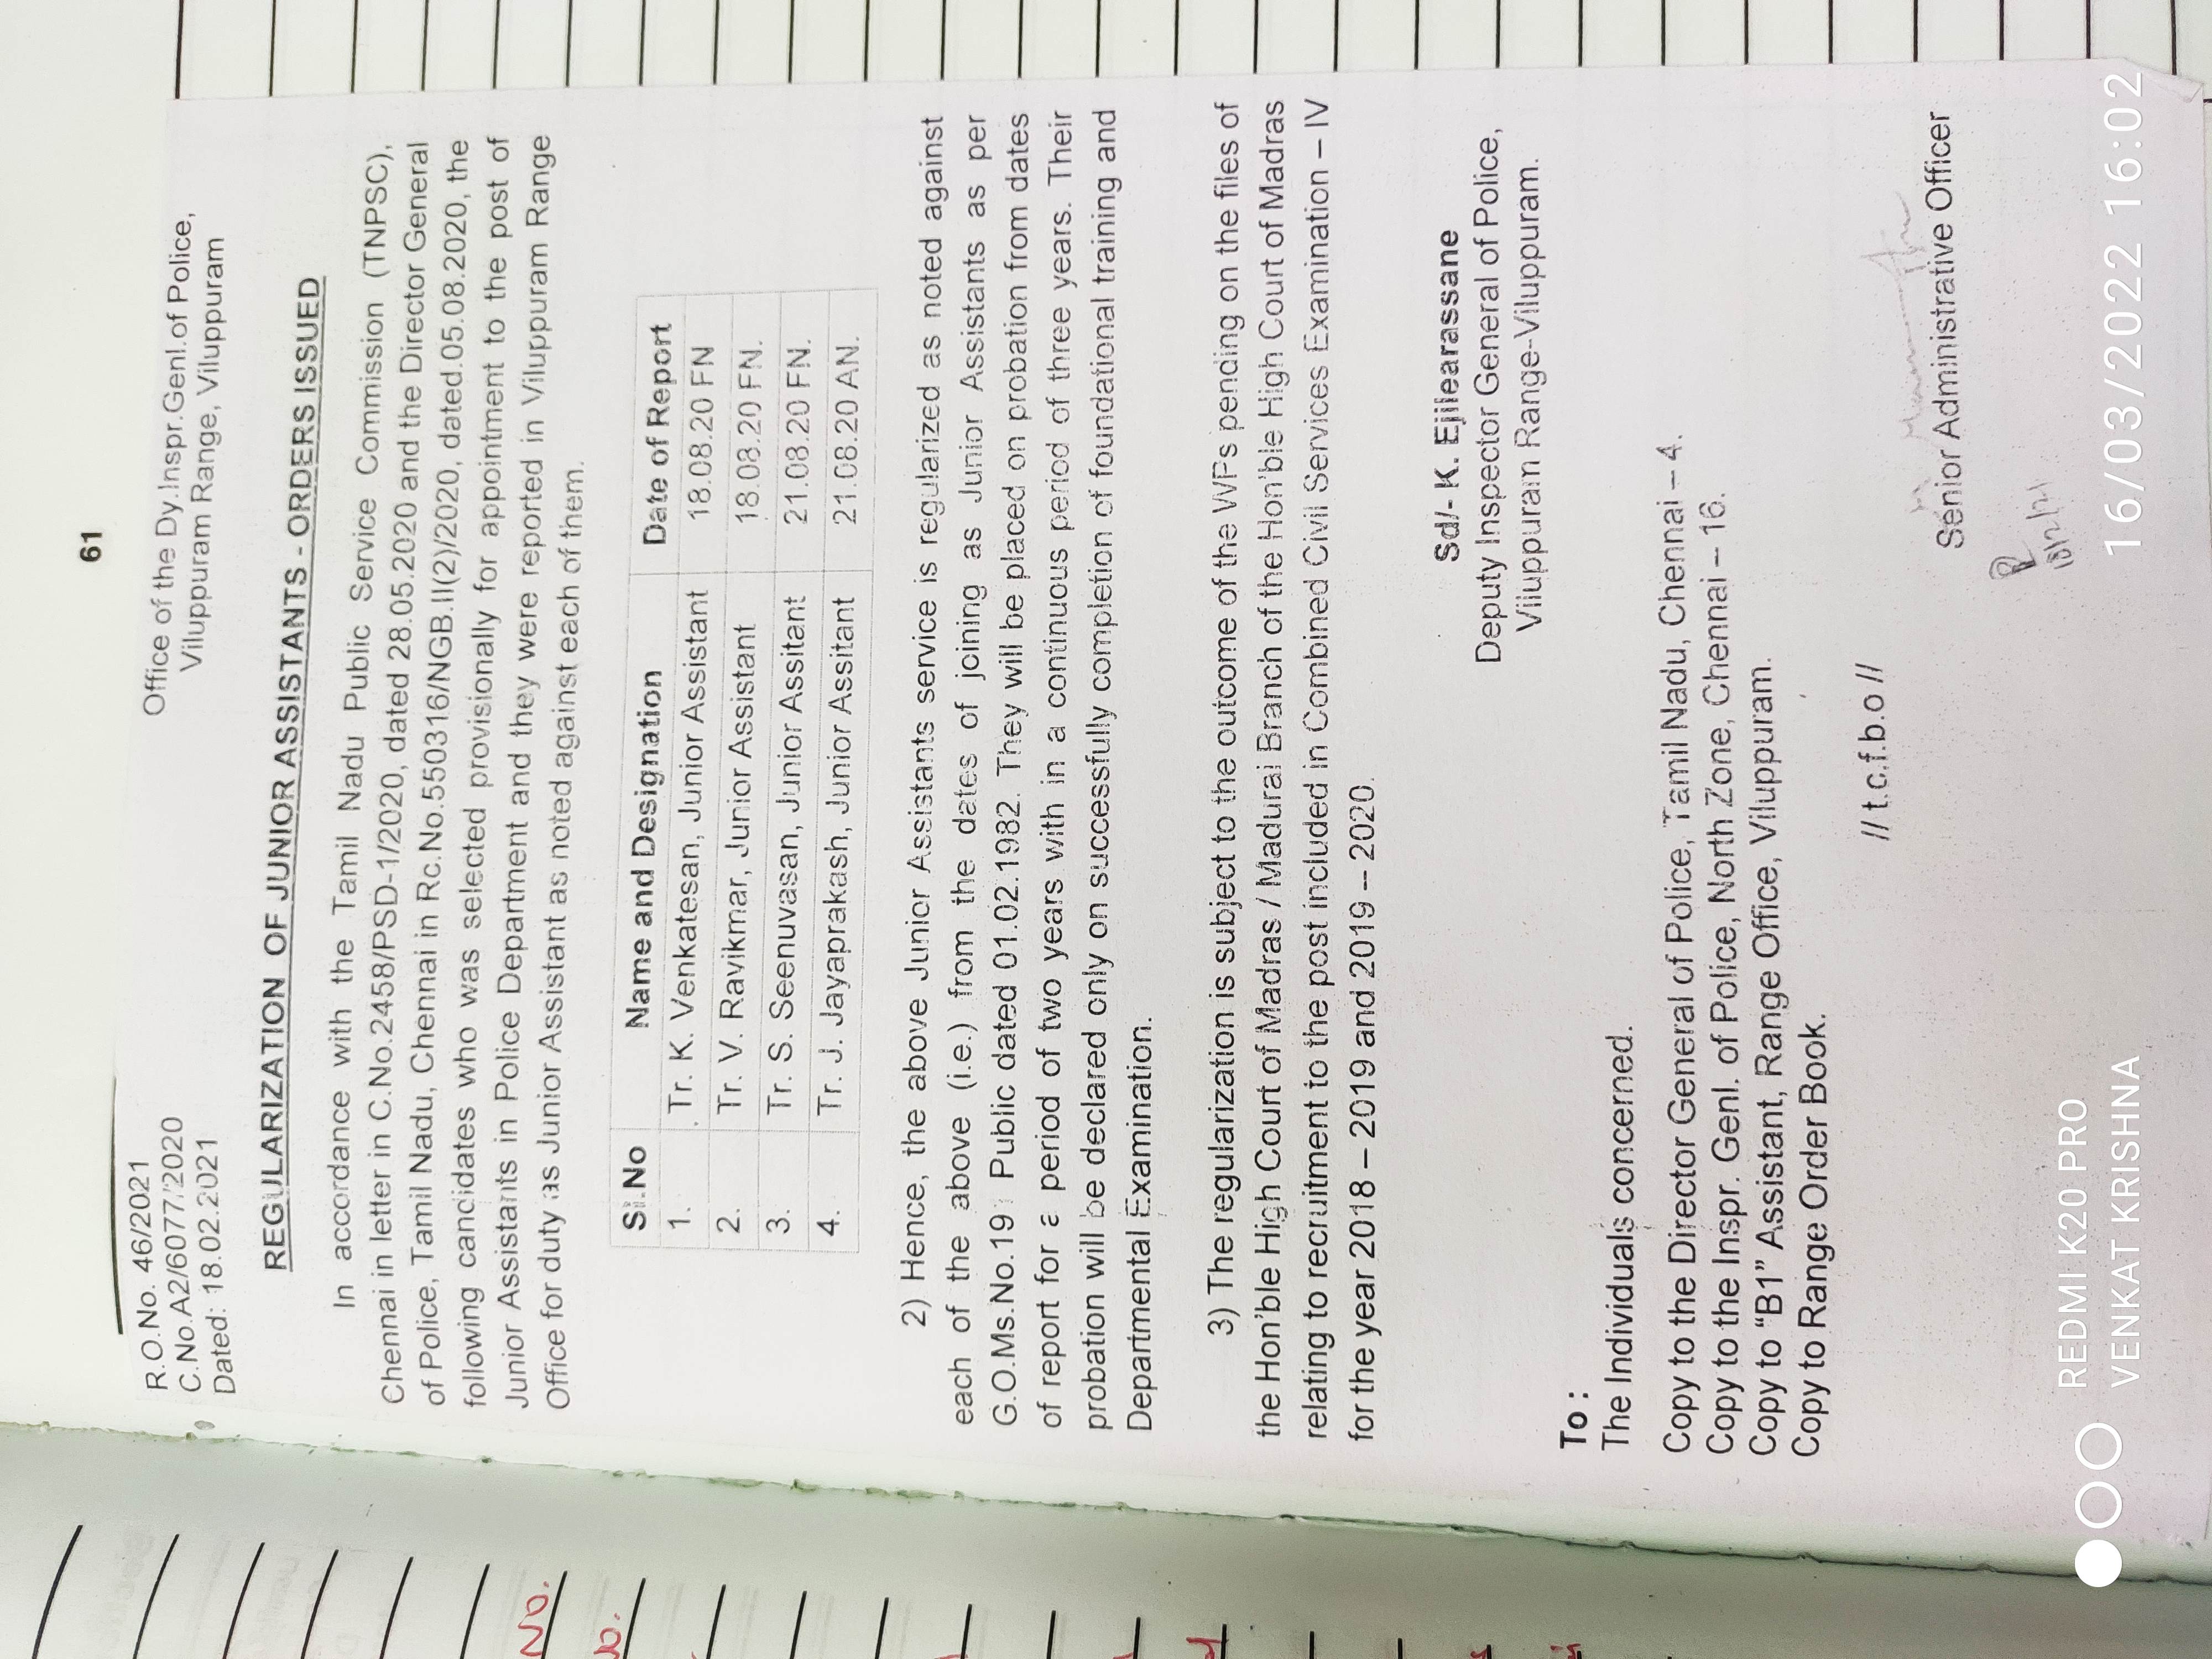 61
R.O.No. 46/2021
C.No.A2/6077/2020
Dated: 18.02.2021
Office of the Dy.Inspr.Genl.of Police,
Viluppuram Range, Viluppuram
REGULARIZATION OF JUNIOR ASSISTANTS - ORDERS ISSUED
In accordance with the Tamil Nadu Public Service Commission (TNPSC),
Chennai in letter in C.No.2458/PSD-1/2020, dated 28.05.2020 and the Director General
of Police, Tamil Nadu, Chennai in Rc.No.550316/NGB.II(2)/2020, dated.05.08.2020, the
following candidates who was selected provisionally for appointment to the post of
Junior Assistants in Police Department and they were reported in Viluppuram Range
Office for duty as Junior Assistant as noted against each of them.
Sl.No Name and Designation Date of Report
1. Tr. K. Venkatesan, Junior Assistant 18.08.20 FN
2. Tr. V. Ravikmar, Junior Assistant 18.08.20 FN.
3. Tr. S. Seenuvasan, Junior Assitant 21.08.20 FN.
4. Tr. J. Jayaprakash, Junior Assitant 21.08.20 AN.
2) Hence, the above Junior Assistants service is regularized as noted against
each of the above (i.e.) from the dates of joining as Junior Assistants as per
G.O.Ms.No.191 Public dated 01.02.1982. They will be placed on probation from dates
of report for a period of two years with in a continuous period of three years. Their
probation will be declared only on successfully completion of foundational training and
Departmental Examination.
3) The regularization is subject to the outcome of the WPs pending on the files of
the Hon'ble High Court of Madras / Madurai Branch of the Hon'ble High Court of Madras
relating to recruitment to the post included in Combined Civil Services Examination – IV
for the year 2018 – 2019 and 2019 – 2020.
Sd/- K. Ejilearassane
Deputy Inspector General of Police,
Viluppuram Range-Viluppuram.
To :
The Individuals concerned.
Copy to the Director General of Police, Tamil Nadu, Chennai – 4.
Copy to the Inspr. Genl. of Police, North Zone, Chennai – 16.
Copy to “B1” Assistant, Range Office, Viluppuram.
Copy to Range Order Book.
// t.c.f.b.o //
Senior Administrative Officer
REDMI K20 PRO
VENKAT KRISHNA
16/03/2022 16:02
No.